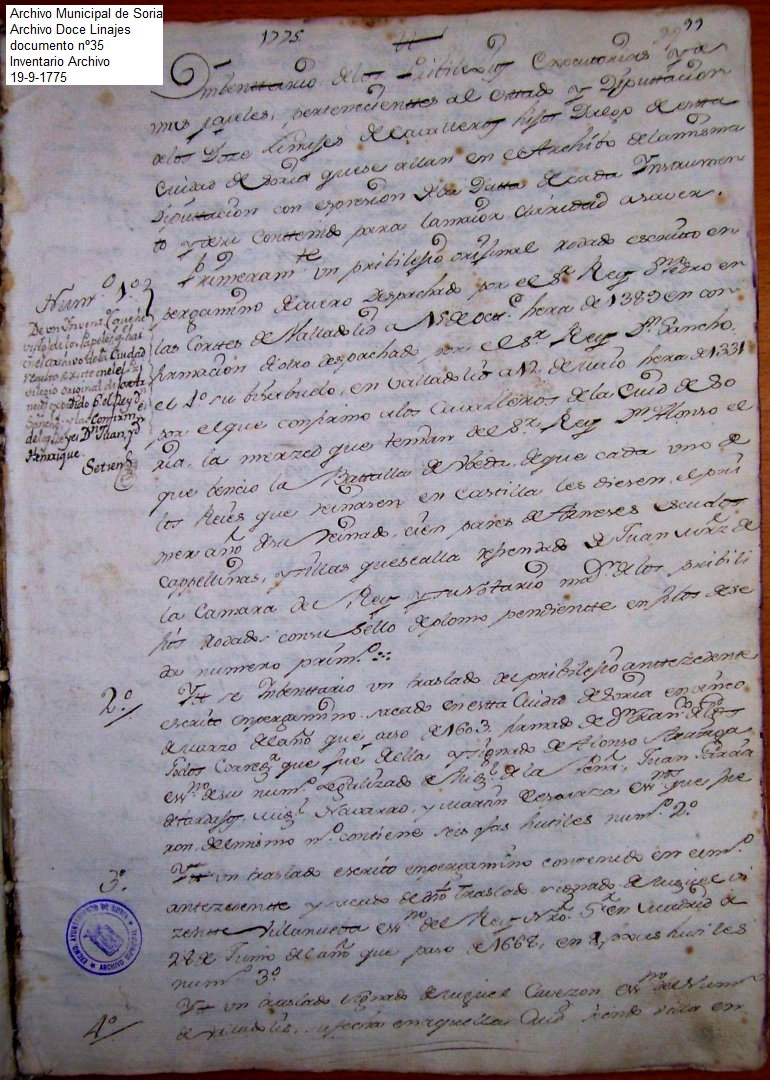 Archivo Municipal de Soria
Archivo Doce Linajes
documento nº35
Inventario Archivo
19-9-1775
1775
99
Imbenttario de los Pribilegios Executorias y de
mas papeles, pertenecientes al esttado y Diputtacion
de los Doze Linajes de Cavalleros hijos Dalgo de estta
Ciudad de Soria que se allan en el Archibo de la misma
Diputtacion con expresion de la Datta de cada Instrumen
to y de su Conttenido para la maior claridad a saver.
Primeramte un pribilegio original rodado escrito en
pergamino de cuero Despachado por el Sr Rey Dn Pedro en
las Cortes de Valladolid a 15 de Octe hera de 1389 en con
firmacion de otro despachado por el Sr Rey Dn Sancho
el 4º su bisabuelo, en Valladolid a 12 de Julio hera de 1331
por el que confirmo a los Cavalleros de la Ciud de So
ria, la merzed que tenian del Sr Rey Dn Alonso el
que bencio la Battalla de Ubeda, de que cada uno de
los Reies que reinasen en Castilla les diesen, el pri
mer año de su reinado, cien pares de Arneses escudos
cappellinas, y sillas que se alla refrendado de Juan
la Camara del Rey y su Notario maor de los pribili
jios Rodados con su sello de plomo pendientte en filos de se
da numero primo
Numo 1º
De un Invento que he
visto de los papeles q hai
en el archivo de la Ciudad
resulta existte en el el Pri
vilegio original
expedido pr el Rey Dn
Sancho, y las Confirms
de los Reyes Dn Juan, y Dn
Henrique
2º
Yt se Imbenttario un traslado del pribilegio anttezedente
escrito en pergamino sacado en estta Ciudad de Soria en cinco
de Marzo del año que paso de 1603 firmado de Dn Franco de los
Corregr que fue de ella y signado de Alonso
essno de su numo legalizado de Migl de la Peña, Juan Garcia
de Tardesillas Migl Navarro, y Martin de Esparza essnos que fue
ron del mismo no contiene seis ojas hutiles numo 2º
3º
Yt un traslado escrito en pergamino contenido en el no
antezedentte y sacado de dho Traslado signado de Miguel Vi
zentte Villanueba essno del Rey Nro Sr en Madrid a
28 de Junio del año que paso de 1668, en ojas hutiles
numo 3º
4º
Yt un traslado signado de Miguel Cavezon essno del Numo
de Valladolid, su fecha en aquella Ciud siendo villa en
EXCMO. AYUNTAMIENTO DE SORIA
ARCHIVO